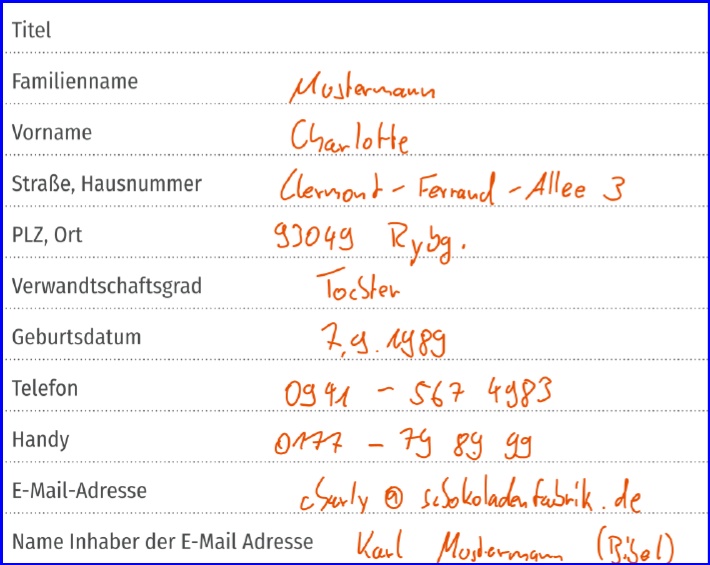 Titel
Familienname Mustermann
Vorname Charlotte
Straße, Hausnummer Clermont-Ferrand-Allee 3
PLZ, Ort 93049 Rgbg.
Verwandtschaftsgrad Tochter
Geburtsdatum 7.9.1989
Telefon 0941 - 567 4983
Handy 0177 - 79 89 99
E-Mail-Adresse charly@schokoladenfabrik.de
Name Inhaber der E-Mail Adresse Karl Mustermann (Bibel)